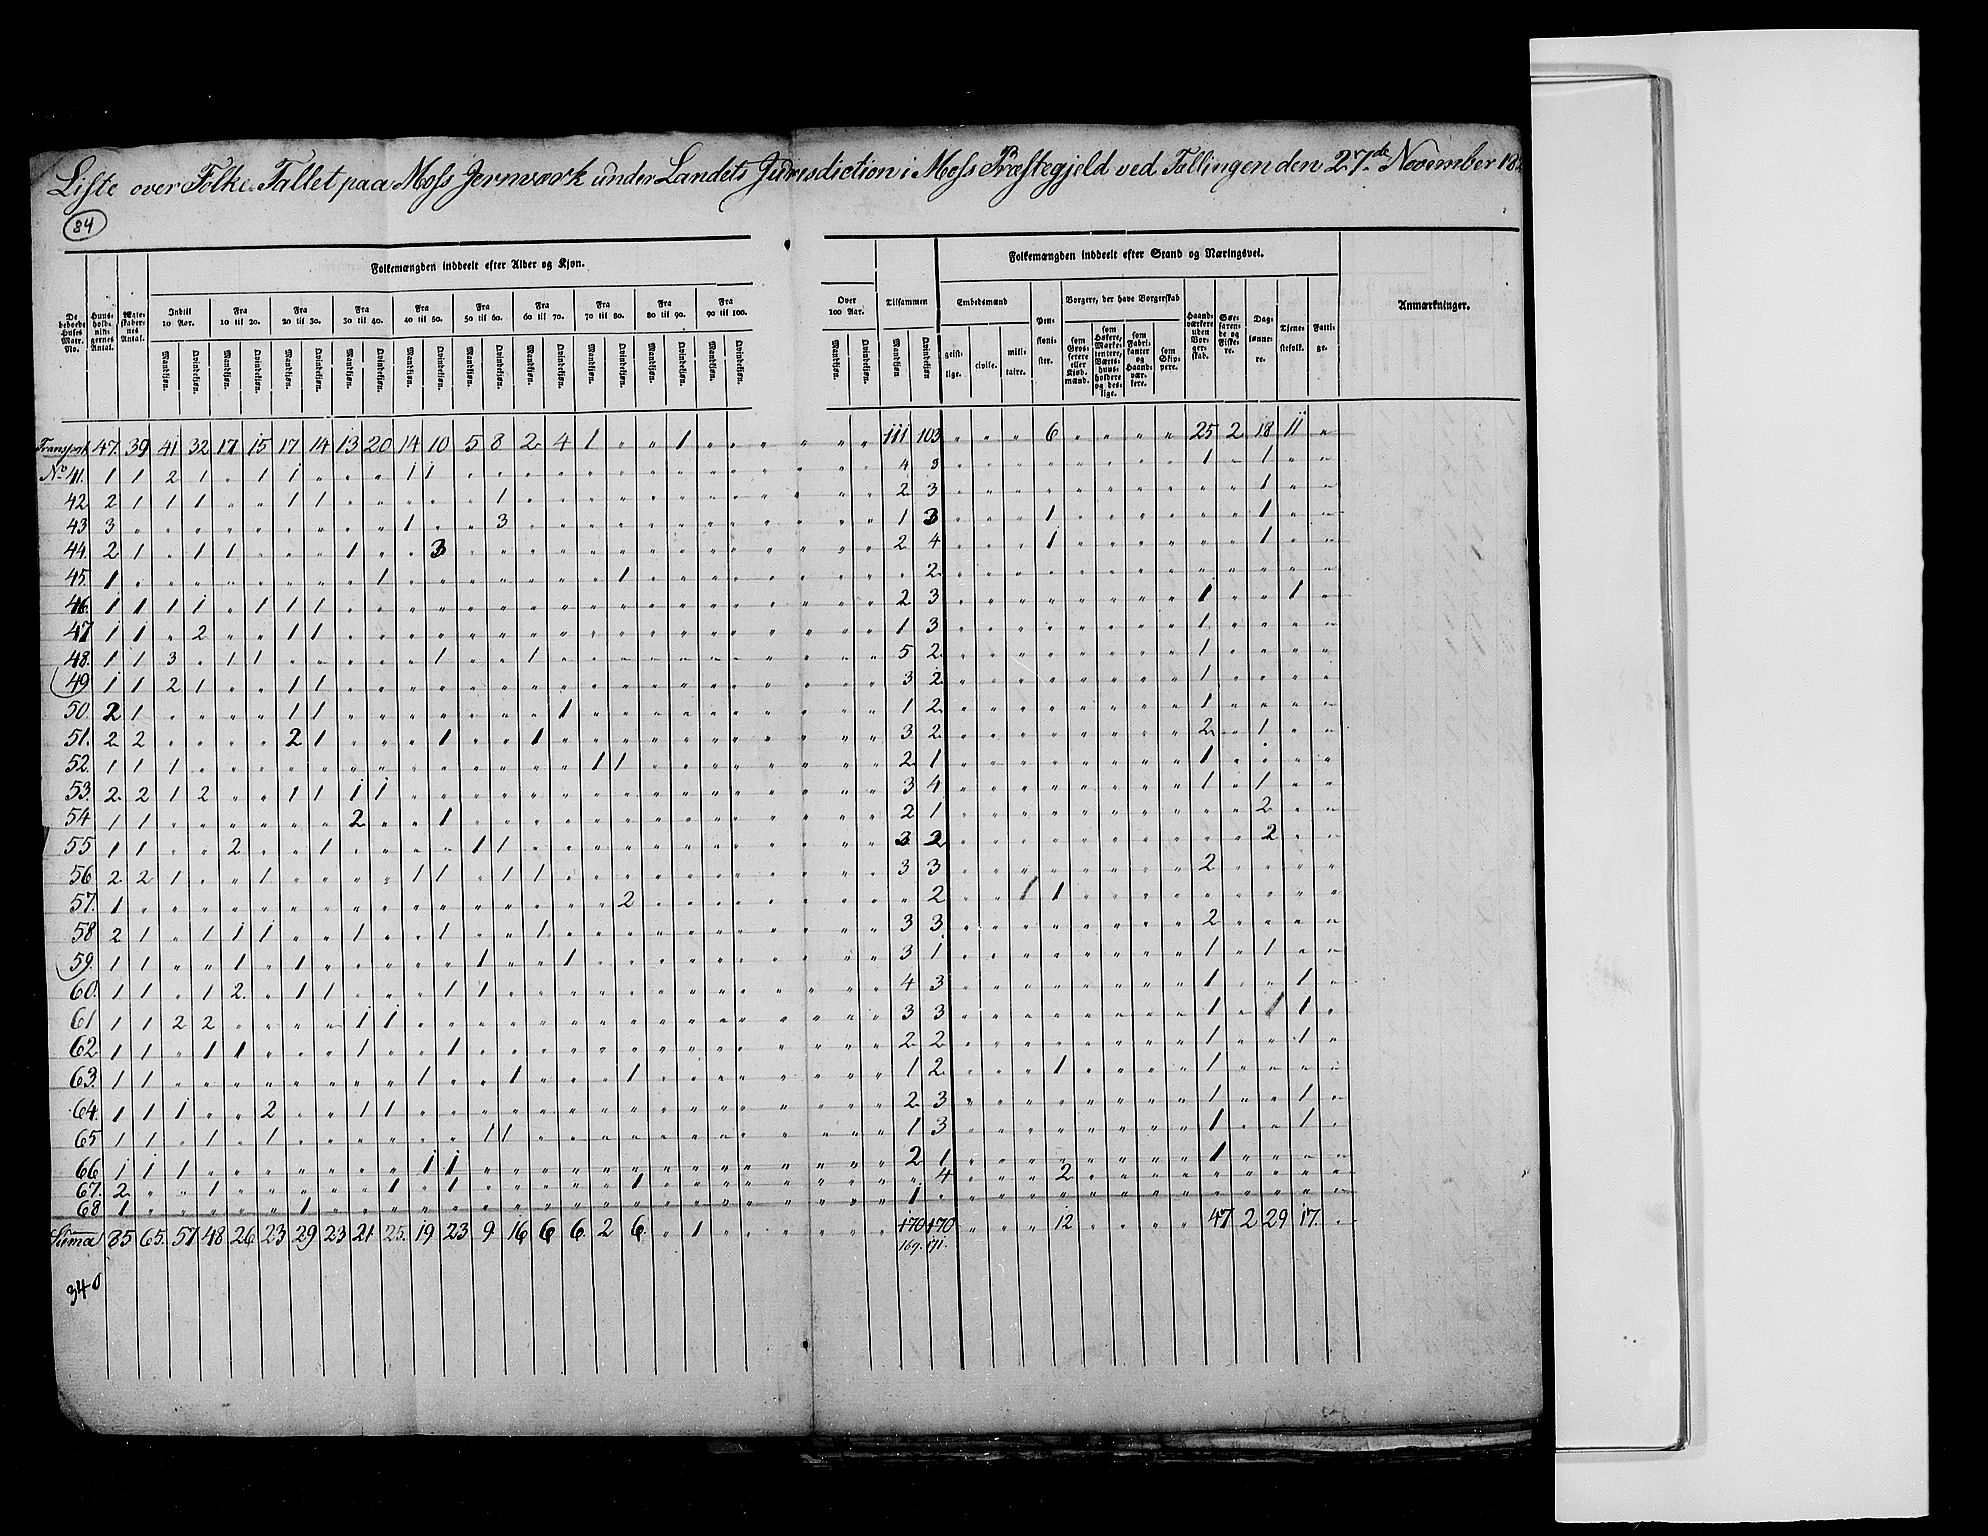 Liste over Folke-Tallet paa Moss Jernværk under Landets Jurisdiction i Moss Præstegjeld ved Tellingen den 27de November 18
84
Folkemængden inddeelt efter Alder og Kjøn.
Folkemængden inddeelt efter Stand og Næringsvei.
De beboede Huses Matr. No.
Huusholdningernes Antal.
Ægteskabernes Antal.
Indtil 10 Aar.
Fra 10 til 20.
Fra 20 til 30.
Fra 30 til 40.
Fra 40 til 50.
Fra 50 til 60.
Fra 60 til 70.
Fra 70 til 80.
Fra 80 til 90.
Fra 90 til 100.
Over 100 Aar.
Tilsammen
Embedsmænd
Pensionister.
Borgere, der have Borgerskab
Haandværkere uden Borgerskab.
Søefarende og Fiskere.
Daglønnere.
Tjenestefolk.
Fattige.
Anmærkninger.
Mandkjøn. Qvindekjøn. Mandkjøn. Qvindekjøn. Mandkjøn. Qvindekjøn. Mandkjøn. Qvindekjøn. Mandkjøn. Qvindekjøn. Mandkjøn. Qvindekjøn. Mandkjøn. Qvindekjøn. Mandkjøn. Qvindekjøn. Mandkjøn. Qvindekjøn. Mandkjøn. Qvindekjøn. Mandkjøn. Qvindekjøn. Mandkjøn Qvindekjøn
geistlige. civile. militaire.
som Grosserere eller Kjøbmænd.
som Høkere, Marketentere, Værtshuusholdere og deslige.
som Fabrikanter og Haandværkere.
som Skippere.
Transport 47. 39 41 32 17 15 17 14 13 20 14 10 5 8 2 4 1 " " 1 " " " " 111 103 " " " 6 " " " " 25 2 18 11 "
No 41. 1 1 2 1 " 1 1 " " " 1 1 " 4 3 " 1 " 1 " "
42 2 1 1 1 " " 1 1 " " " " " 1 " 2 3 " 1 " "
43 3 " " " " " " " " " 1 " " 3 " 1 3 " " " 1 " 1 " "
44. 2 1 " 1 1 " " " 1 " " 3 " 2 4 " " " 1 " 1 " "
45. 1 " " " " " " " " 1 " " " " " " " 1 " " 2 "
46. 1 1 1 1 " 1 1 1 " 2 3 " 1 " " 1 "
47 1 1 " 2 " " 1 1 " 1 3 " 1 " " " "
48. 1 1 3 " 1 1 " " " " " 1 " " 1 " 5 2 " 1 " " " "
49 1 1 2 1 " " 1 1 " 3 2 " 1 " " " "
50. 2 1 " " " " 1 1 " " " " " " " 1 " 1 2 " 1 " " " "
51. 2 2 " " " " 2 1 " " " 1 " " 1 " 3 2 " 2 " 1 " "
52. 1 1 1 " " " " " " " " " " " " " 1 1 " 2 1 " 1 " " " "
53. 2 2 1 2 " " 1 1 1 1 " 3 4 " 1 " 1 " "
54 1 1 " " " " " " 2 " " 1 " 2 1 " 2 " "
55 1 1 " " 2 " " 1 " " " " 1 1 " 3 2 " 2 " "
56 2 2 1 " " 1 " " " " 1 1 " 1 1 " 3 3 " 2 " " " "
57. 1 " " " " " " " " " " " " " " " " 2 " " 2 " " 1 1 "
58 2 1 " 1 1 1 " " 1 " " 1 " " 1 " 3 3 " 2 " " " "
59. 1 1 " " 1 " 1 " " " " " 1 " " 1 " 3 1 " 1 " 1 " "
60. 1 1 " 1 2 " 1 1 " " " 1 1 " 4 3 " 1 " " 1 "
61 1 1 2 2 " " " " 1 1 " 3 3 " 1 " 1 1 "
62 1 1 " 1 1 " " " 1 " " 1 " 2 2 " 1 " " 1 "
63. 1 1 " " " " " " " " 1 " " 1 " " " 1 " 1 2 " " " 1 " 1 " " " "
64. 1 1 1 " " 2 " " 1 1 " 2 3 " 1 " " 1 "
65 1 1 " 1 " 1 " " " " " " 1 1 " 1 3 " 1 " " 1 "
66 1 1 1 " " " " " " " 1 1 " 2 1 " 1 " " " "
67. 2 " " 1 " " " " " 1 " 1 " " " " " 1 " " 4 " " " 2 "
68 1 " " " " " 1 " 1 " "
Suma 85 65. 57 48 26 23 29 23 21 25. 19 23 9 16 6 6. 2 6. " 1 " " " " 170 170 " " " 12 " " " " 47 2 29 17. "
169. 171.
340